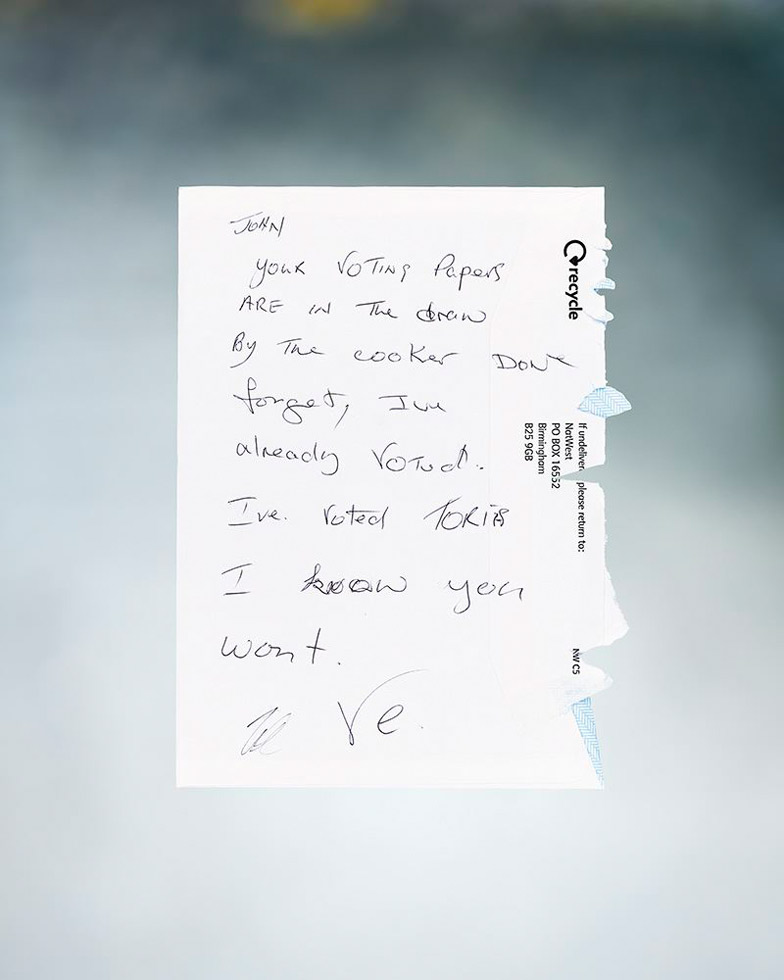 JOHN
your VOTING Papers
ARE IN The draw
By The cooker DONt
forget, Ive
already Voted.
Ive. Voted TORIES
I know you
wont.
Ve.
recycle
If undelivered please return to:
NatWest
PO BOX 16532
Birmingham
B25 9GB
NW C5